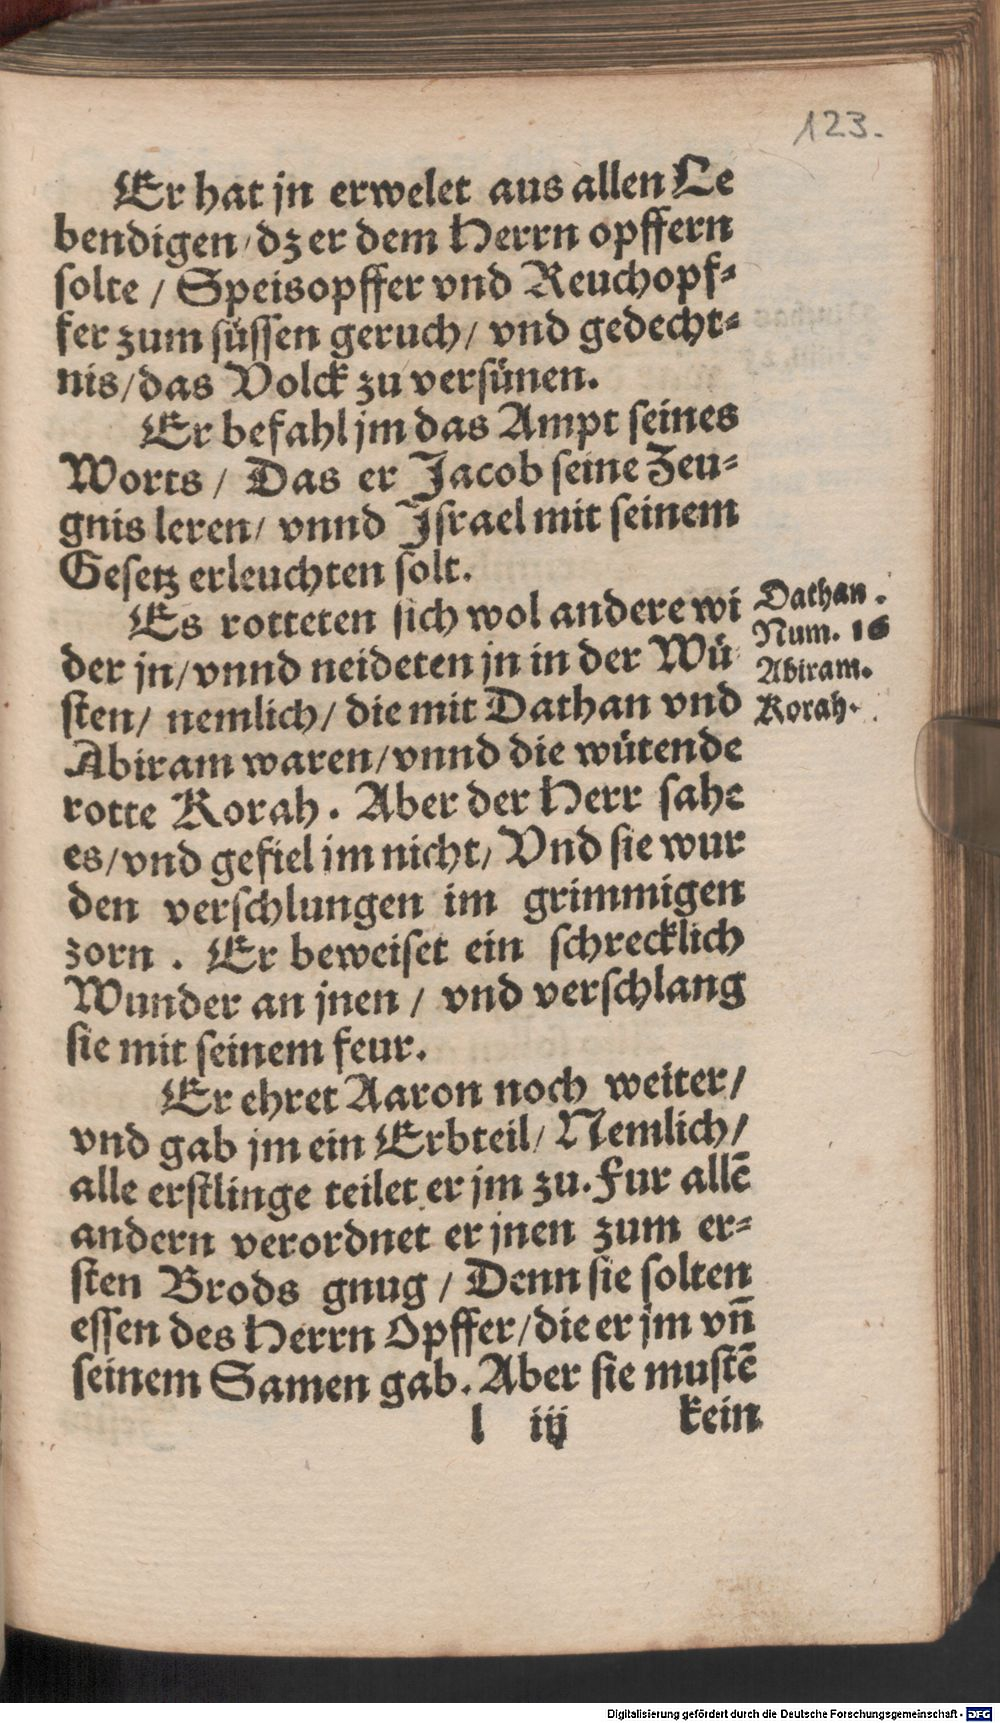 123.
Er hat jn erwelet aus allen Le
bendigen/dz er dem Herrn opffern
solte / Speisopffer vnd Reuchopf⸗
fer zum süssen geruch/ vnd gedecht⸗
nis/das Volck zu versünen.
Er befahl jm das Ampt seines
Worts / Das er Jacob seine Zeu⸗
gnis leren/ vnnd Israel mit seinem
Gesetz erleuchten solt.
Es rotteten sich wol andere wi
der jn/vnnd neideten jn in der Wü
sten/ nemlich/ die mit Dathan vnd
Abiram waren/vnnd die wütende
rotte Korah. Aber der Herr sahe
es/vnd gefiel im nicht/ Vnd sie wur
den verschlungen im grimmigen
zorn . Er beweiset ein schrecklich
Wunder an jnen / vnd verschlang
sie mit seinem feur.
Er ehret Aaron noch weiter/
vnd gab jm ein Erbteil/ Nemlich/
alle erstlinge teilet er jm zu. Fur allē
andern verordnet er jnen zum er⸗
sten Brods gnug / Denn sie solten
essen des Herrn Opffer/die er jm vn̄
seinem Samen gab. Aber sie mustē
l iij kein
Dathan.
Num. 16
Abiram.
Korah.
Digitalisierung gefördert durch die Deutsche Forschungsgemeinschaft - DFG